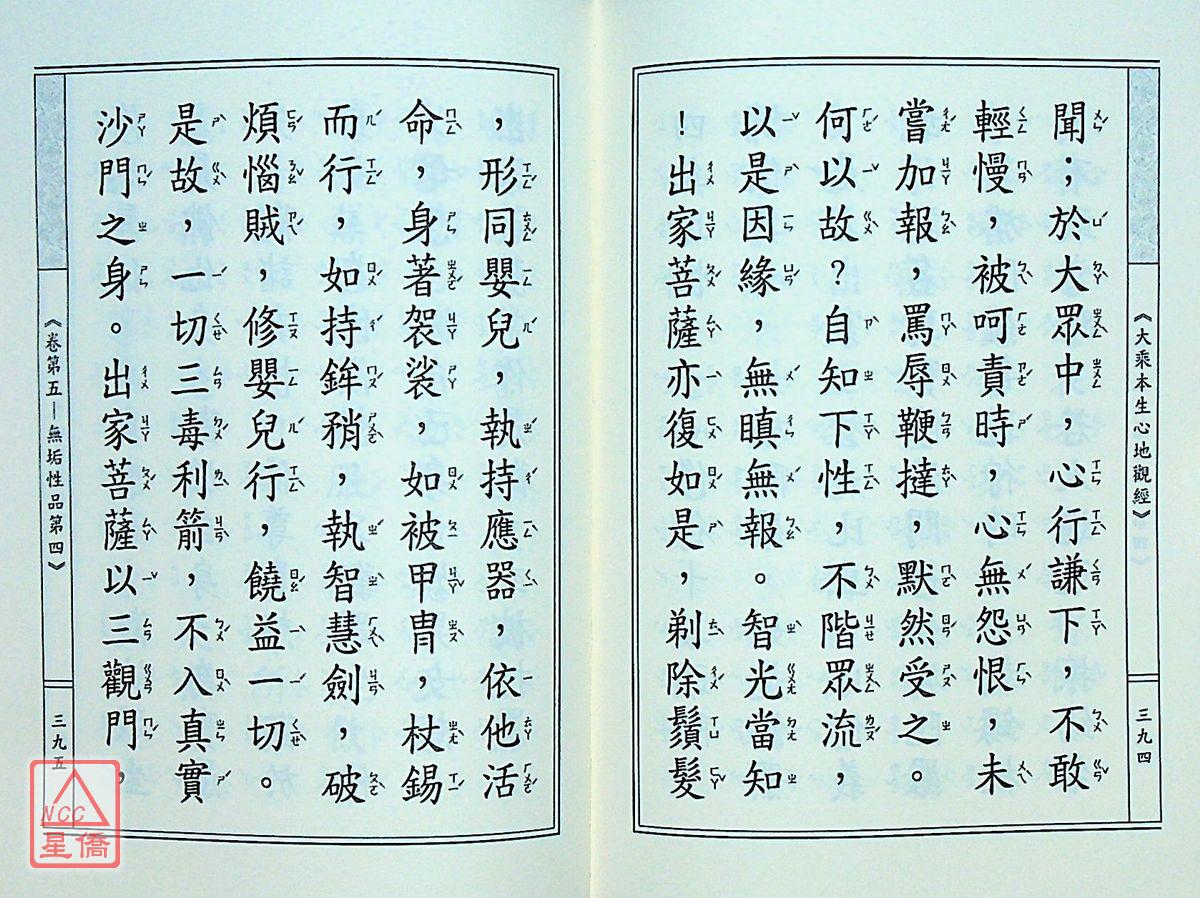 《大乘本生心地觀經》
三九四
聞；於大眾中，心行謙下，不敢
輕慢，被呵責時，心無怨恨，未
嘗加報，罵辱鞭撻，默然受之。
何以故？自知下性，不階眾流，
以是因緣，無瞋無報。智光當知
！出家菩薩亦復如是，剃除鬚髮
，形同嬰兒，執持應器，依他活
命，身著袈裟，如被甲冑，杖錫
而行，如持鉾矟，執智慧劍，破
煩惱賊，修嬰兒行，饒益一切。
是故，一切三毒利箭，不入真實
沙門之身。出家菩薩以三觀門，
《卷第五－無垢性品第四》
三九五
NCC
星僑